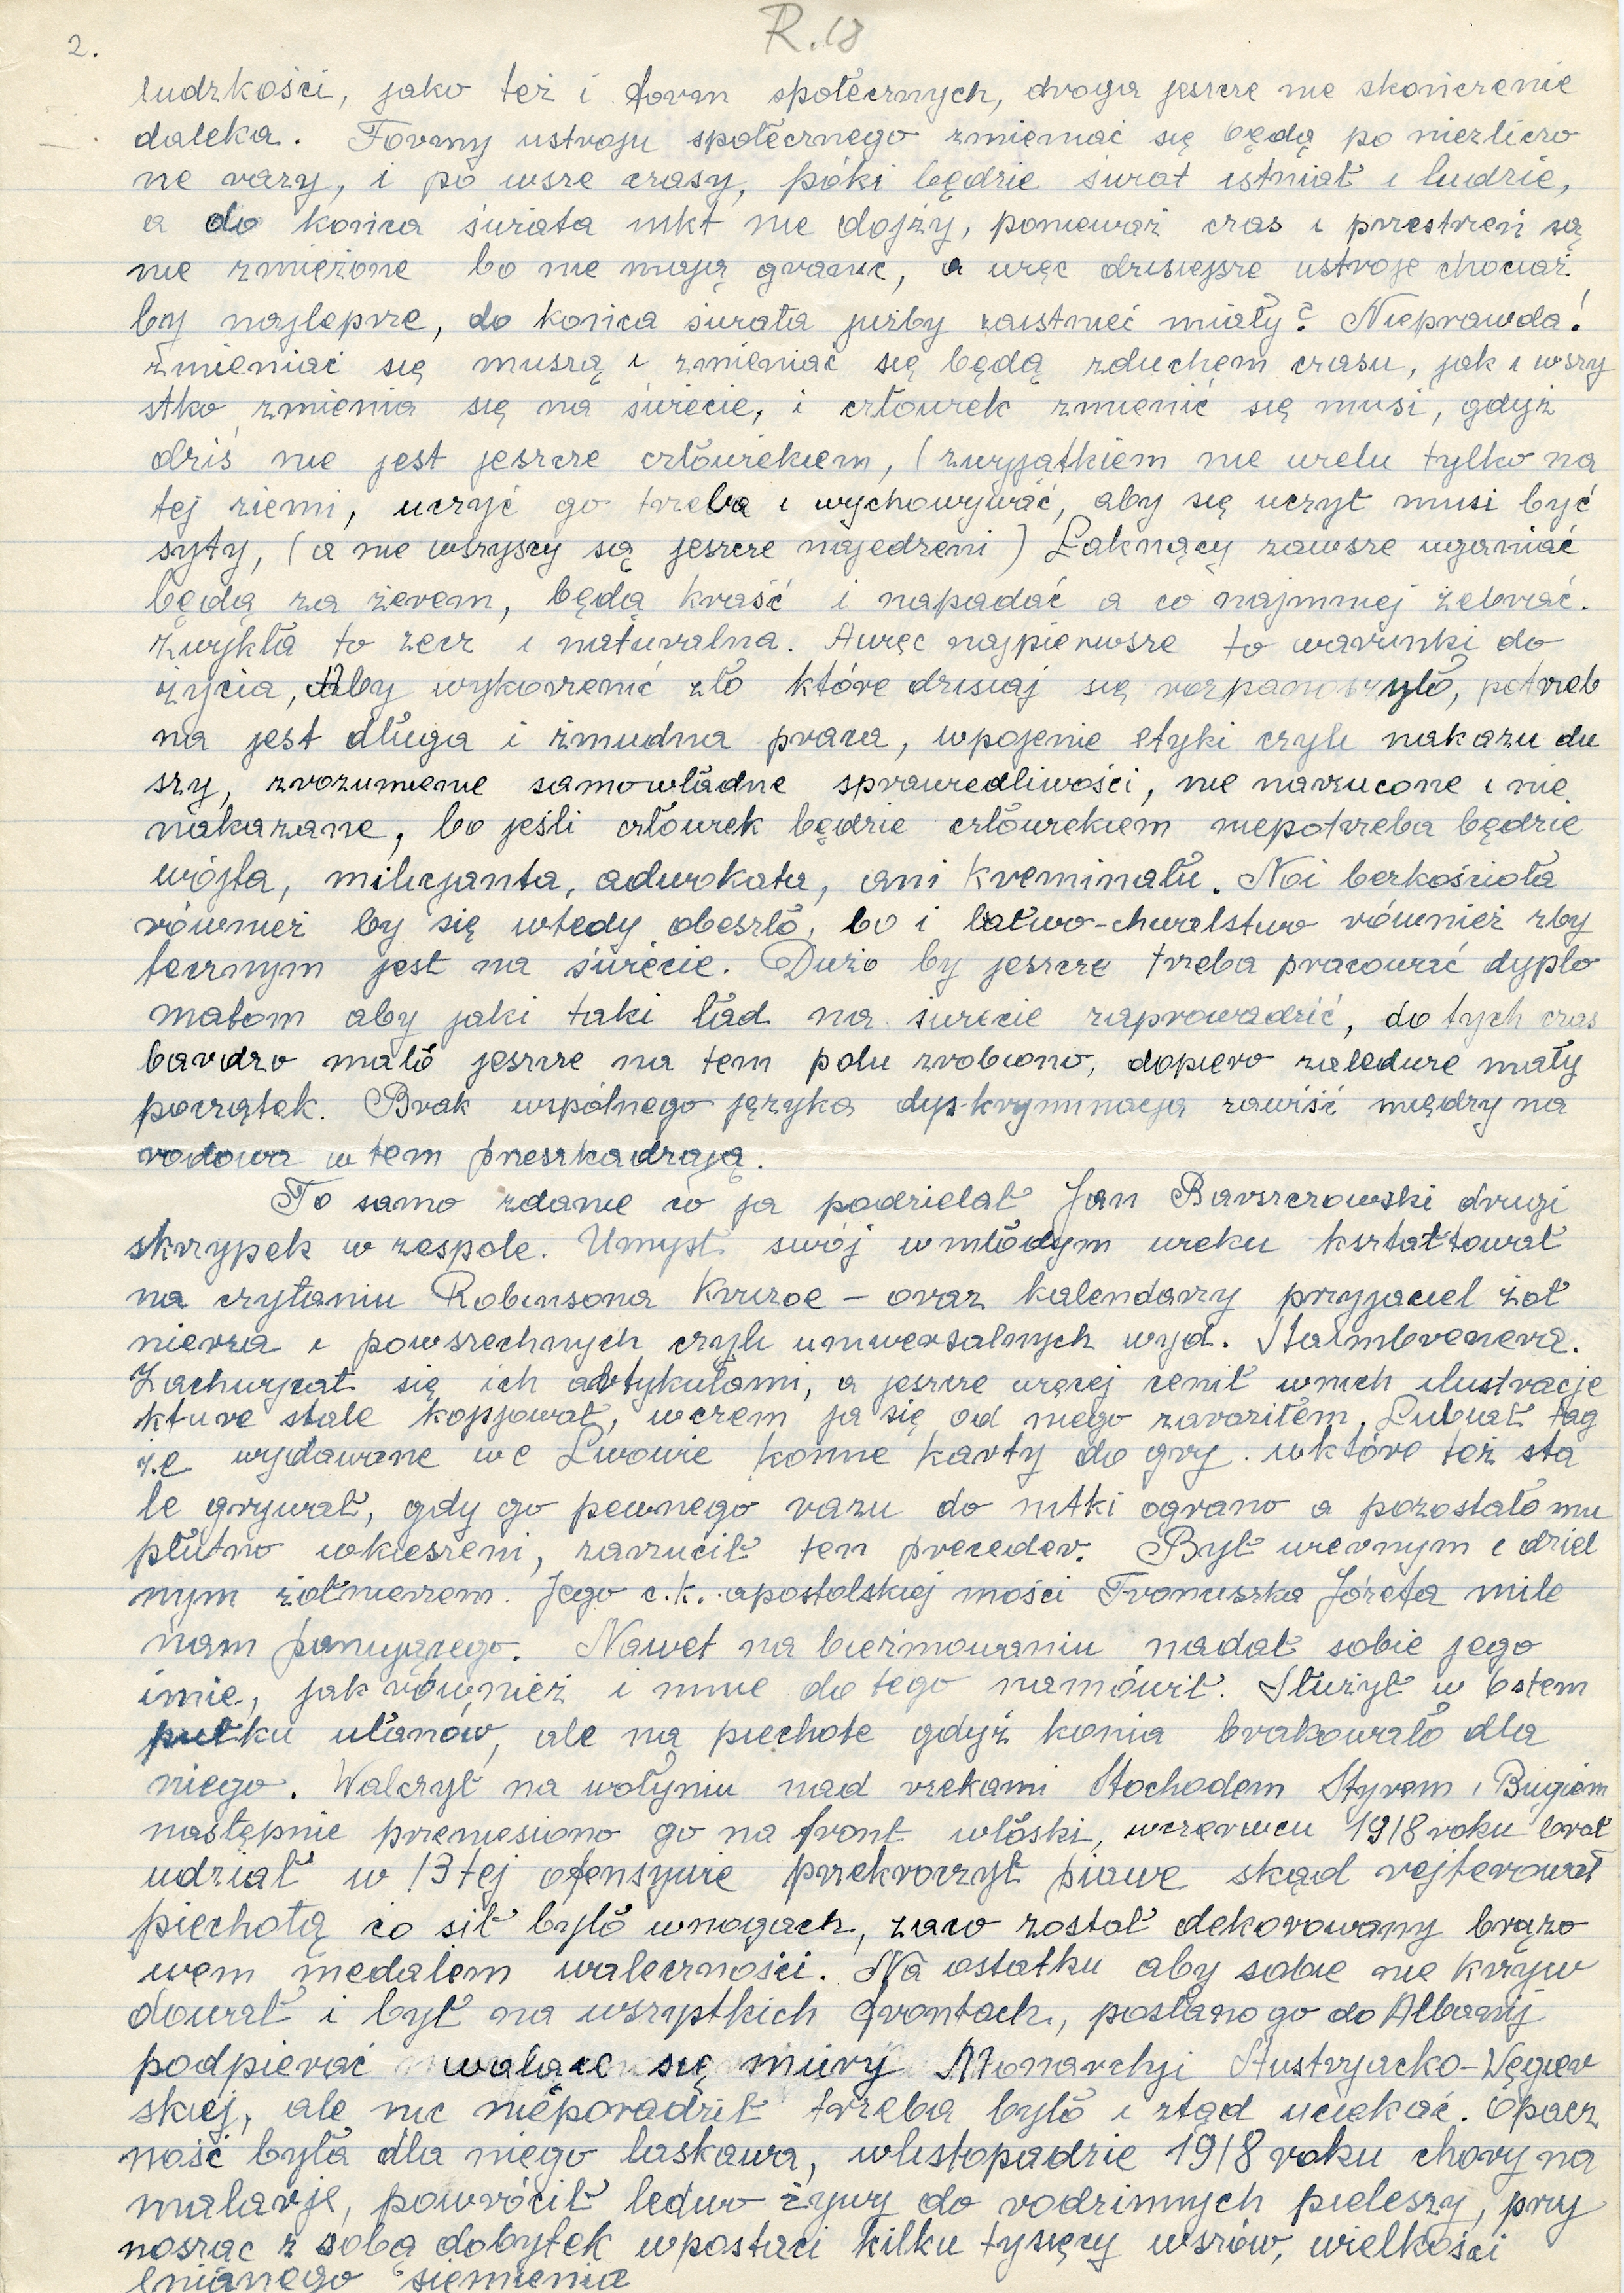 R.18
2.
ludzkości, jako też i form społecznych, droga jeszcze nie skończenie
daleka. Formy ustroju społecznego zmieniać się będą po niezliczo
ne razy, i po wsze czasy, póki będzie świat istniał i ludzie,
a do końca świata nikt nie dojży, ponieważ czas i przestrzeń są
nie zmieżone bo nie mają granic, a więc dzisiejsze ustroje chociaż
by najlepsze, do końca świata jużby zaistnieć miały? Nieprawda!
zmieniać się muszą i zmieniać się będą zduchem czasu, jak i wszy
stko zmienia się na świecie, i człowiek zmienić się musi, gdyż
dziś nie jest jeszcze człowiekiem, (zwyjątkiem nie wielu tylko na
tej ziemi, uczyć go trzeba i wychowywać, aby się uczył musi być
syty, (a nie wszyscy są jeszcze najedzeni) Łaknący zawsze uganiać
będą za żerem, będą kraść i napadać a co najmniej żebrać.
Zwykła to zecz i naturalna. Awięc najpierwsze to warunki do
życia, Aby wykorzenić zło które dzisiaj się rozpanoszyło, potrzeb
na jest długa i żmudna praca, wpojenie etyki czyli nakazu du
szy, zrozumienie samowładne sprawiedliwości, nie narzucone i nie
nakazane, bo jeśli człowiek będzie człowiekiem niepotrzeba będzie
wójta, milicjanta, adwokata, ani kreminału. Noi bezkościoła
również by się wtedy obeszło, bo i łatwo-chwalstwo również zby
tecznym jest na świecie. Dużo by jeszcze trzeba pracować dyplo
matom aby jaki taki ład na świecie zaprowadzić, do tych czas
bardzo mało jeszcze na tem polu zrobiono, dopiero zaledwie mały
początek. Brak wspólnego języka dys-kryminacja zawiść między na
rodowa w tem przeszkadzają.
To samo zdanie co ja podzielał Jan Barszczowski drugi
skrzypek w zespole. Umysł swój wmłodym wieku kształtował
na czytaniu Robinsona Kruzoe - oraz kalendarzy przyjaciel żoł
nierza i powszechnych czyli uniwersalnych wyd. Stainbrenera.
Zachwycał się ich artykułami, a jeszcze więcej cenił wnich ilustracje
które stale kopjował, wczem ja się od niego zaraziłem. Lubiał tag
że wydawane we Lwowie konne karty do gry. wktóre też sta
le grywał, gdy go pewnego razu do nitki ograno a pozostało mu
płutno wkieszeni, zarzucił ten proceder. Był wiernym i dziel
nym żołnierzem. Jego c.k. apostolskiej mości Franciszka Józefa mile
nam panującego. Nawet na bierzmowaniu nadał sobie jego
imie, jak również i mnie do tego namówił. Służył w 6stem
pułku ułanów, ale na piechote gdyż konia brakowało dla
niego. Walczył na wołyniu nad rzekami Stochodem Styrem i Bugiem
następnie przeniesiono go na front włoski, wczerwcu 1918 roku brał
udział w 13tej ofensywie przekroczył piawe skąd rejterował
piechotą co sił było wnogach, zaco został dekorowany brązo
wem medalem waleczności. Na ostatku aby sobie nie krzyw
dował i był na wszystkich frontach, posłano go do Albanij
podpierać walące się mury Monarchji Austryjacko-Węgier
skiej, ale nic nieporadził trzeba było i ztąd uciekać. Opacz
ność była dla niego łaskawa, wlistopadzie 1918 roku chory na
malarje, powrócił ledwo żywy do rodzinnych pieleszy, przy
nosząc z sobą dobytek wpostaci kilku tysięcy wszów, wielkości
lnianego siemienia